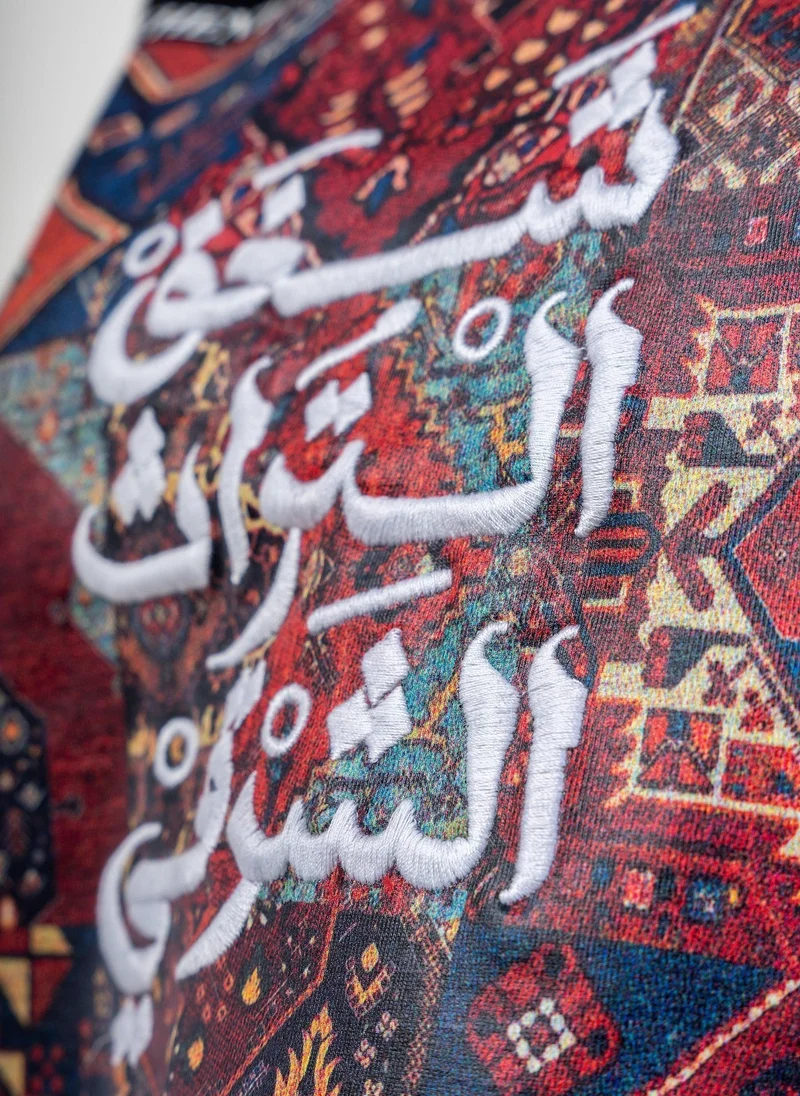 شَفَقْ
الْتَراث
الشَرْقيْ